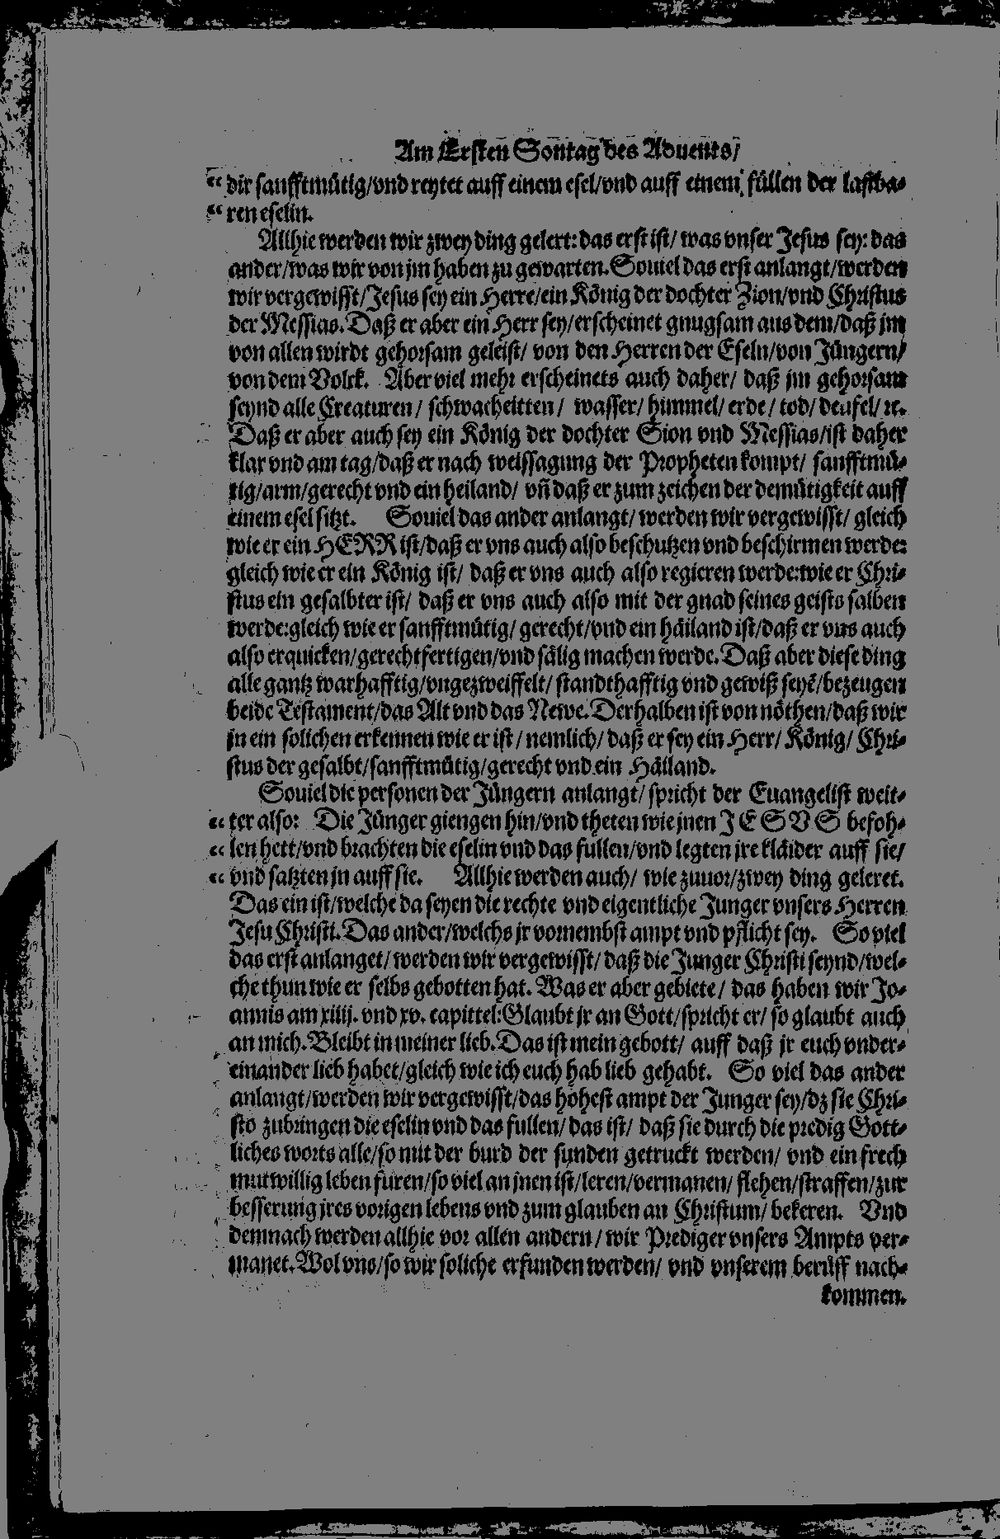 Am Ersten Sontag des Aduents/
“ dir sanfftmütig/vnd reytet auff einem esel/vnd auff einem füllen der lastba⸗
“ ren eselin.
Allhie werden wir zwey ding gelert: das erst ist/ was vnser Jesus sey: das
ander/was wir von jm haben zu gewarten. Souiel das erst anlangt/werden
wir vergewisst/Jesus sey ein Herre/ein König der dochter Zion/vnd Christus
der Messias. Daß er aber ein Herr sey/erscheinet gnugsam aus dem/daß jm
von allen wirdt gehorsam geleist/ von den Herren der Eseln/von Jüngern/
von dem Volck. Aber viel mehr erscheinets auch daher/ daß jm gehorsam
seynd alle Creaturen/ schwacheitten/ wasser/ himmel/ erde/ tod/ deufel/ ꝛc.
Daß er aber auch sey ein König der dochter Sion vnd Messias/ist daher
klar vnd am tag/daß er nach weissagung der Propheten kompt/ sanfftmü⸗
tig/arm/gerecht vnd ein heiland/ vñ daß er zum zeichen der demütigkeit auff
einem esel sitzt. Souiel das ander anlangt/ werden wir vergewisst/ gleich
wie er ein HERR ist/daß er vns auch also beschutzen vnd beschirmen werde:
gleich wie er ein König ist/ daß er vns auch also regieren werde:wie er Chri⸗
stus ein gesalbter ist/ daß er vns auch also mit der gnad seines geists salben
werde:gleich wie er sanfftmütig/ gerecht/vnd ein häiland ist/daß er vns auch
also erquicken/gerechtfertigen/vnd sälig machen werde. Daß aber diese ding
alle gantz warhafftig/vngezweiffelt/ standthafftig vnd gewiß seyē/bezeugen
beide Testament/das Alt vnd das Newe. Derhalben ist von nöthen/daß wir
jn ein solichen erkennen wie er ist/ nemlich/ daß er sey ein Herr/ König/ Chri⸗
stus der gesalbt/sanfftmütig/gerecht vnd ein Häiland.
Souiel die personen der Jüngern anlangt/ spricht der Euangelist weit⸗
“ ter also: Die Jünger giengen hin/vnd theten wie jnen JESVS befoh⸗
“ len hett/vnd brachten die eselin vnd das fullen/vnd legten jre kläider auff sie/
“ vnd satzten jn auff sie. Allhie werden auch/ wie zuuor/zwey ding geleret.
Das ein ist/welche da seyen die rechte vnd eigentliche Junger vnsers Herren
Jesu Christi. Das ander/welchs jr vornembst ampt vnd pflicht sey. So viel
das erst anlanget/ werden wir vergewisst/ daß die Junger Christi seynd/wel⸗
che thun wie er selbs gebotten hat. Was er aber gebiete/ das haben wir Jo⸗
annis am xiiij. vnd xv. capittel:Glaubt jr an Gott/spricht er/ so glaubt auch
an mich. Bleibt in meiner lieb. Das ist mein gebott/ auff daß jr euch vnder⸗
einander lieb habet/gleich wie ich euch hab lieb gehabt. So viel das ander
anlangt/werden wir vergewisst/das höhest ampt der Junger sey/dz sie Chri⸗
sto zubringen die eselin vnd das fullen/ das ist/ daß sie durch die predig Gott⸗
liches worts alle/so mit der burd der sunden getruckt werden/ vnd ein frech
mutwillig leben furen/so viel an jnen ist/leren/vermanen/ flehen/straffen/zur
besserung jres vorigen lebens vnd zum glauben an Christum/ bekeren. Vnd
demnach werden allhie vor allen andern/ wir Prediger vnsers Ampts ver⸗
manet. Wol vns/so wir soliche erfunden werden/ vnd vnserem berüff nach⸗
kommen.